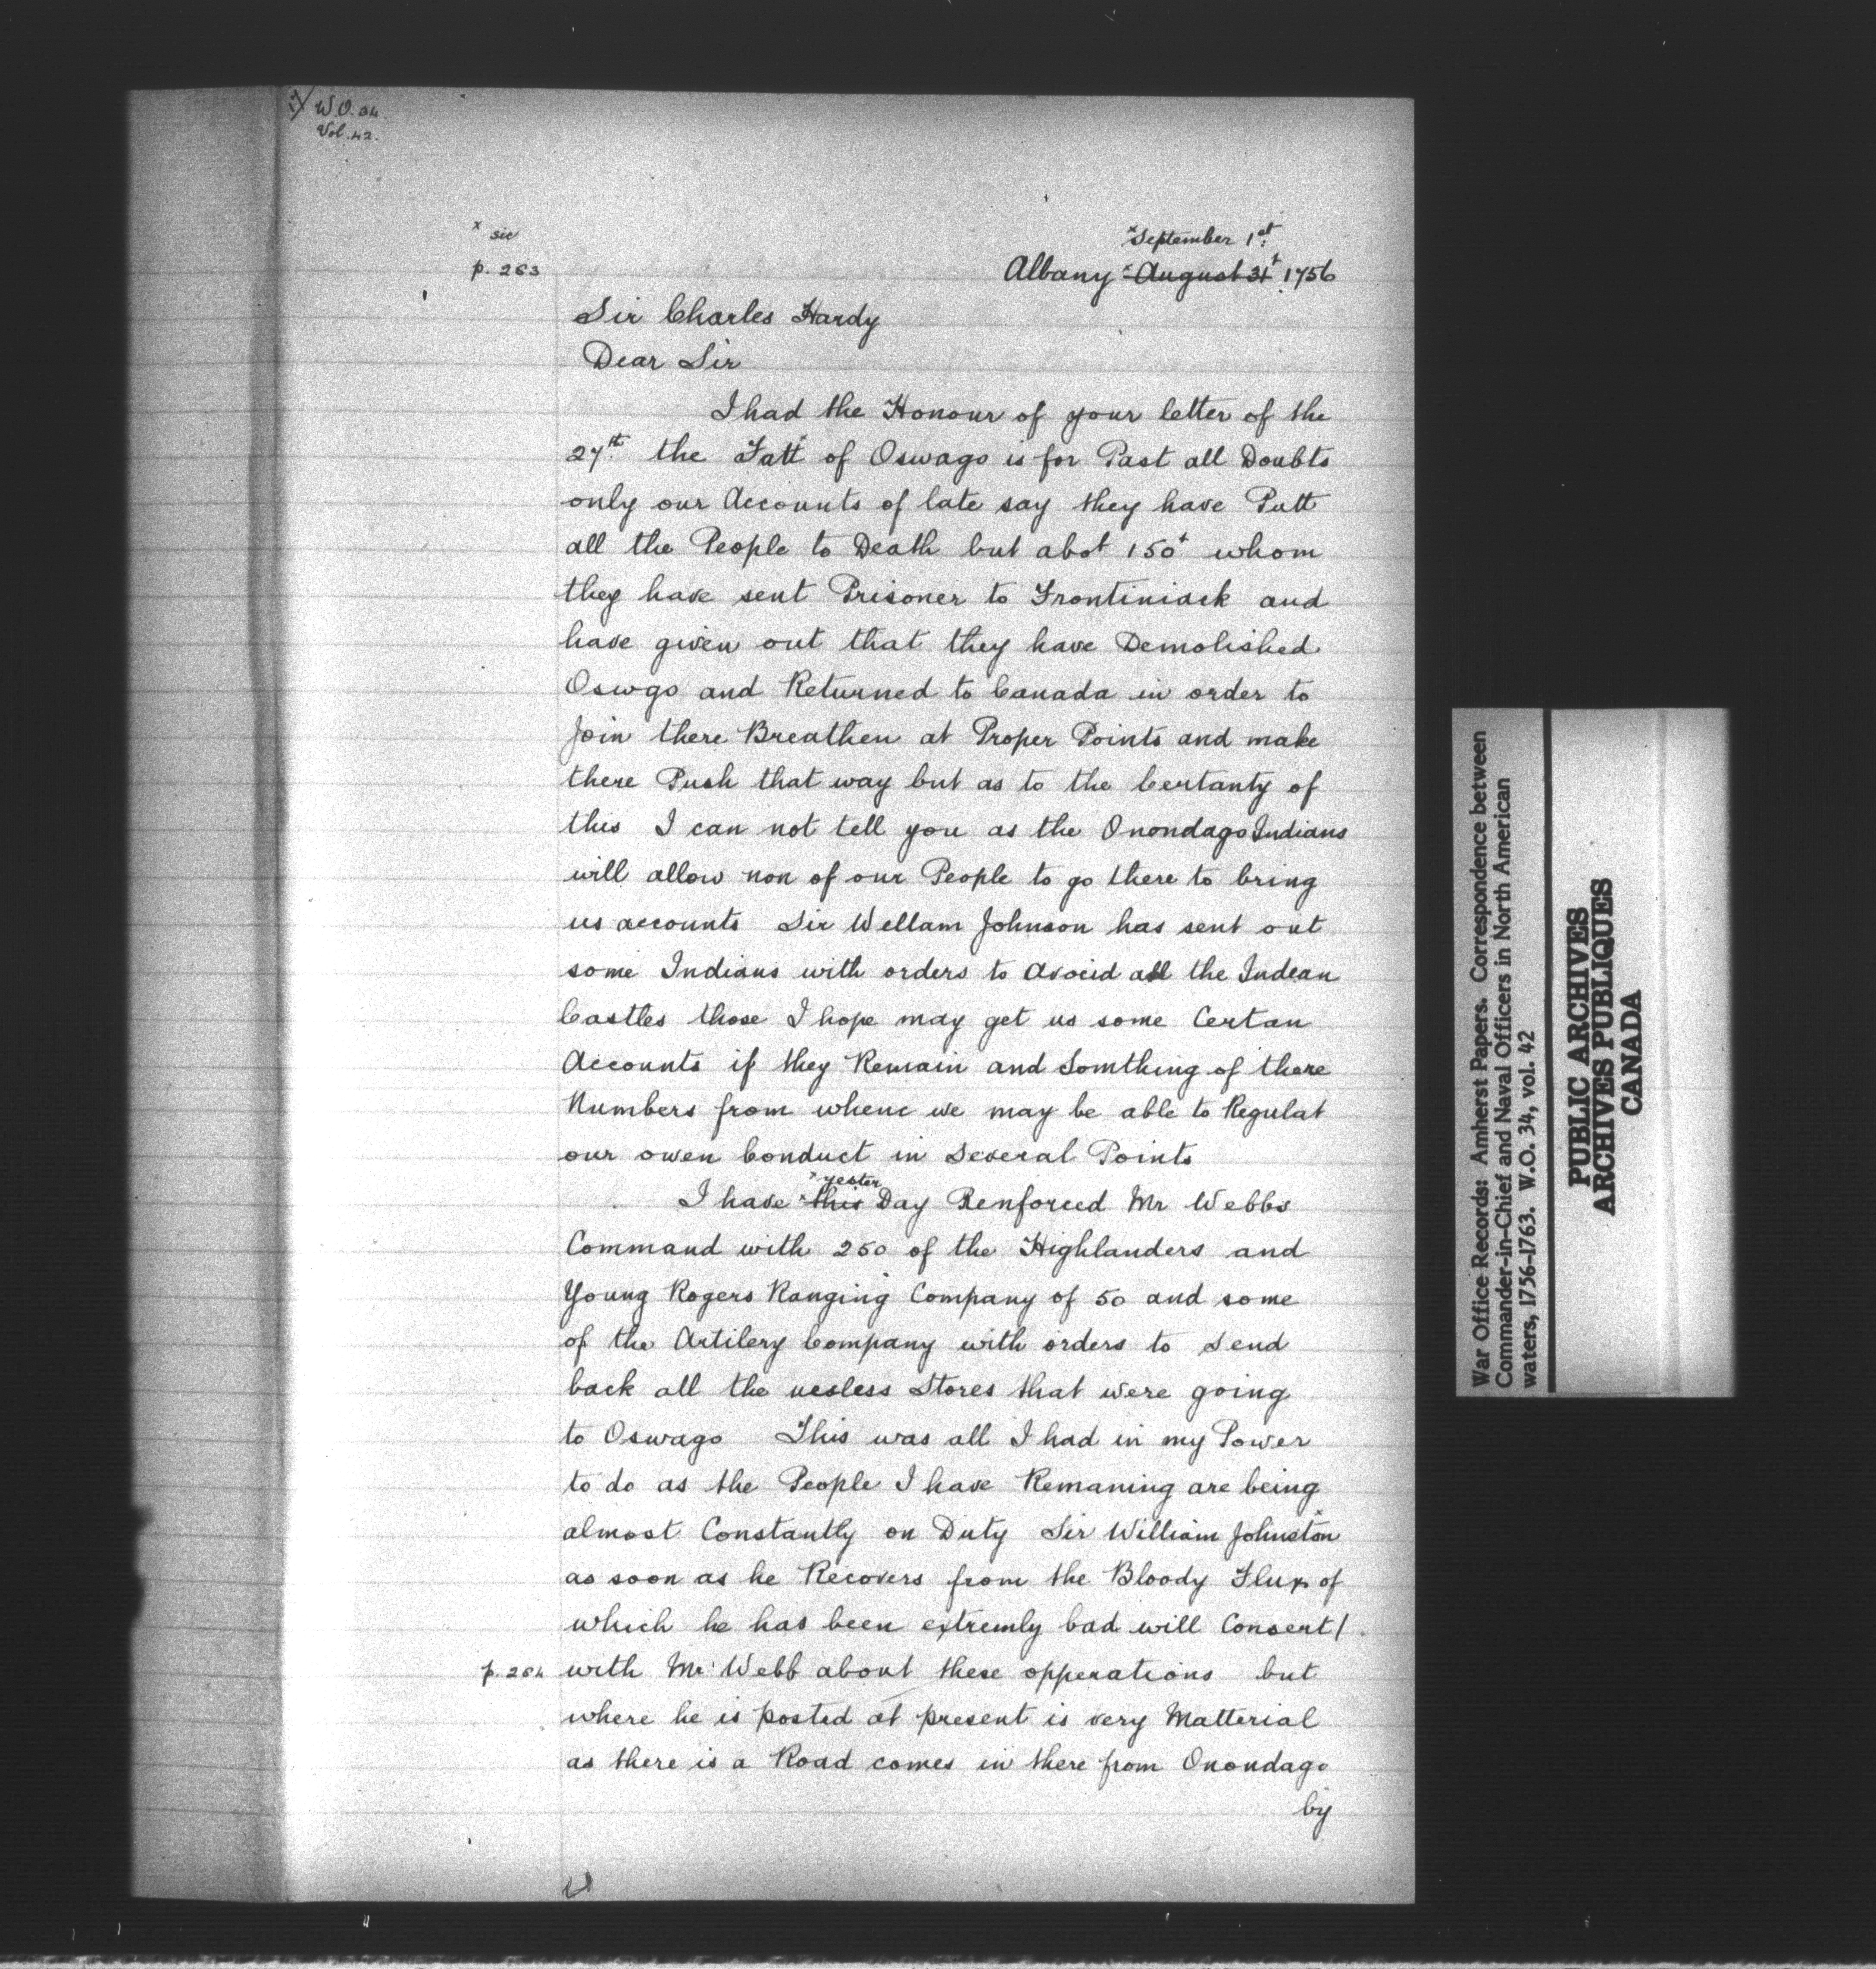 W.O. 34.
Vol. 42.
x sic
p. 263
x September 1st.
Albany x August 31t 1756
Sir Charles Hardy
Dear Sir
I had the Honour of your letter of the
27th. the Fatt x of Oswago is for Past all Doubts
only our Accounts of late say they have Putt
all the People to Death but abot 150t whom
they have sent Prisoner to Frontiniack and
have given out that they have Demolished
Oswgo and Returned to Canada in order to
Join there Breathen at Proper Points and make
there Push that way but as to the Certanty of
this I can not tell you as the Onondago Indians
will allow non of our People to go there to bring
us accounts Sir Wellam Johnson has sent out
some Indians with orders to avoeid all the Indean
Castles those I hope may get us some Certan
Accounts if they Remain and Somthing of there
Numbers from whenc we may be able to Regulat
our owen Conduct in Several Points
x yester
I have x this Day Renforced Mr Webbs
Command with 250 of the Highlanders and
Young Rogers Ranging Company of 50 and some
of the Artilery Company with orders to Send
back all the uesless Stores that were going
to Oswago This was all I had in my Power
to do as the People I have Remaning are being
almost Constantly on Duty Sir William Johnston x
as soon as he Recovers from the Bloody Flux of
which he has been extremly bad will Consert/
p. 264 with Mr Webb about these opperations but
where he is posted at present is very Matterial
as there is a Road comes in there from Onondago
by
War Office Records: Amherst Papers. Correspondence between
Commander-in-Chief and Naval Officers in North American
waters, 1756-1763. W.O. 34, vol. 42
PUBLIC ARCHIVES
ARCHIVES PUBLIQUES
CANADA